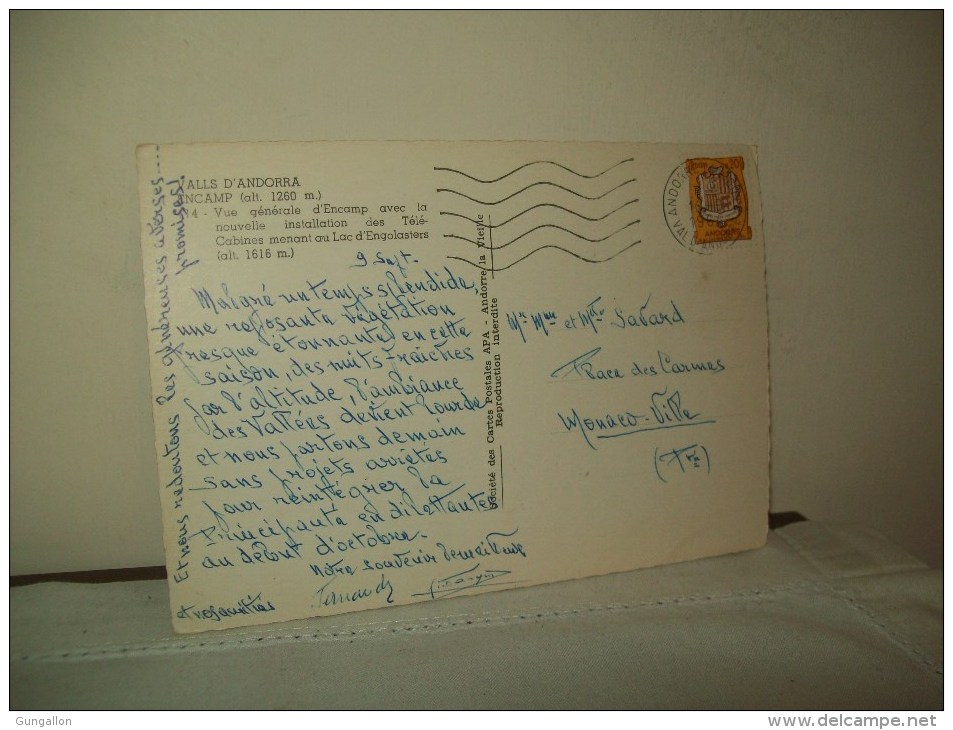 VALLS D'ANDORRA
ENCAMP (alt. 1260 m.)
14 - Vue générale d'Encamp avec la
nouvelle installation des Télé-
Cabines menant au Lac d'Engolasters
(alt. 1616 m.)
9 Sept.
Malgré un temps splendide,
une reposante végétation
presque étonnante en cette
saison, des nuits fraîches
par l'altitude, l'ambiance
des Vallées devient lourde
et nous partons demain
sans projets arrêtés
pour réintégrer la
Principauté en dilettantes
au début d'octobre.
Notre souvenir
et vos amitiés
Fernand
Et nous redoutons les généreuses averses....
promises!
Société des Cartes Postales APA - Andorre la Vieille
Reproduction interdite
ANDORRA
ANDORRE
Mr Mme et Mlle Savard
Place des Carmes
Monaco-Ville
(Pté)
Gungallon
delcampe.net